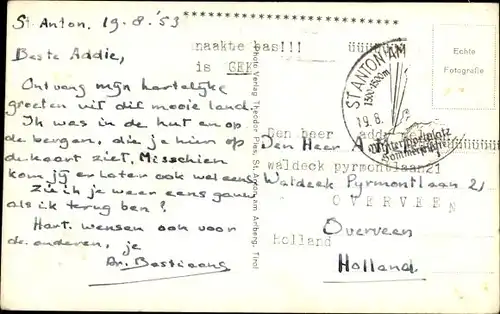 St. Anton, 19.8.'53
Beste Addie,
Ontvang mijn hartelijke
groeten uit dit mooie land.
Ik was in de hut en op
de bergen, die je hier op
de kaart ziet. Misschien
kom jij er later ook wel eens,
Zie ik je weer eens gauw
als ik terug ben?
Hart. wensen ook voor
de anderen, je
Br. Bastiaans
Photo Verlag Theodor Fies, St. Anton am Arlberg, Tirol
naakte bas!!! üüüüü
is GEK
Den heer add
waldeck pyrmontlaan21
OVERVEEN
holland
Den Heer A
Waldeck Pyrmontlaan 21
Overveen
Holland
ST. ANTON AM
1300-1800m
19.8.
Wintersportplatz
Sommerfrische
Echte
Fotografie